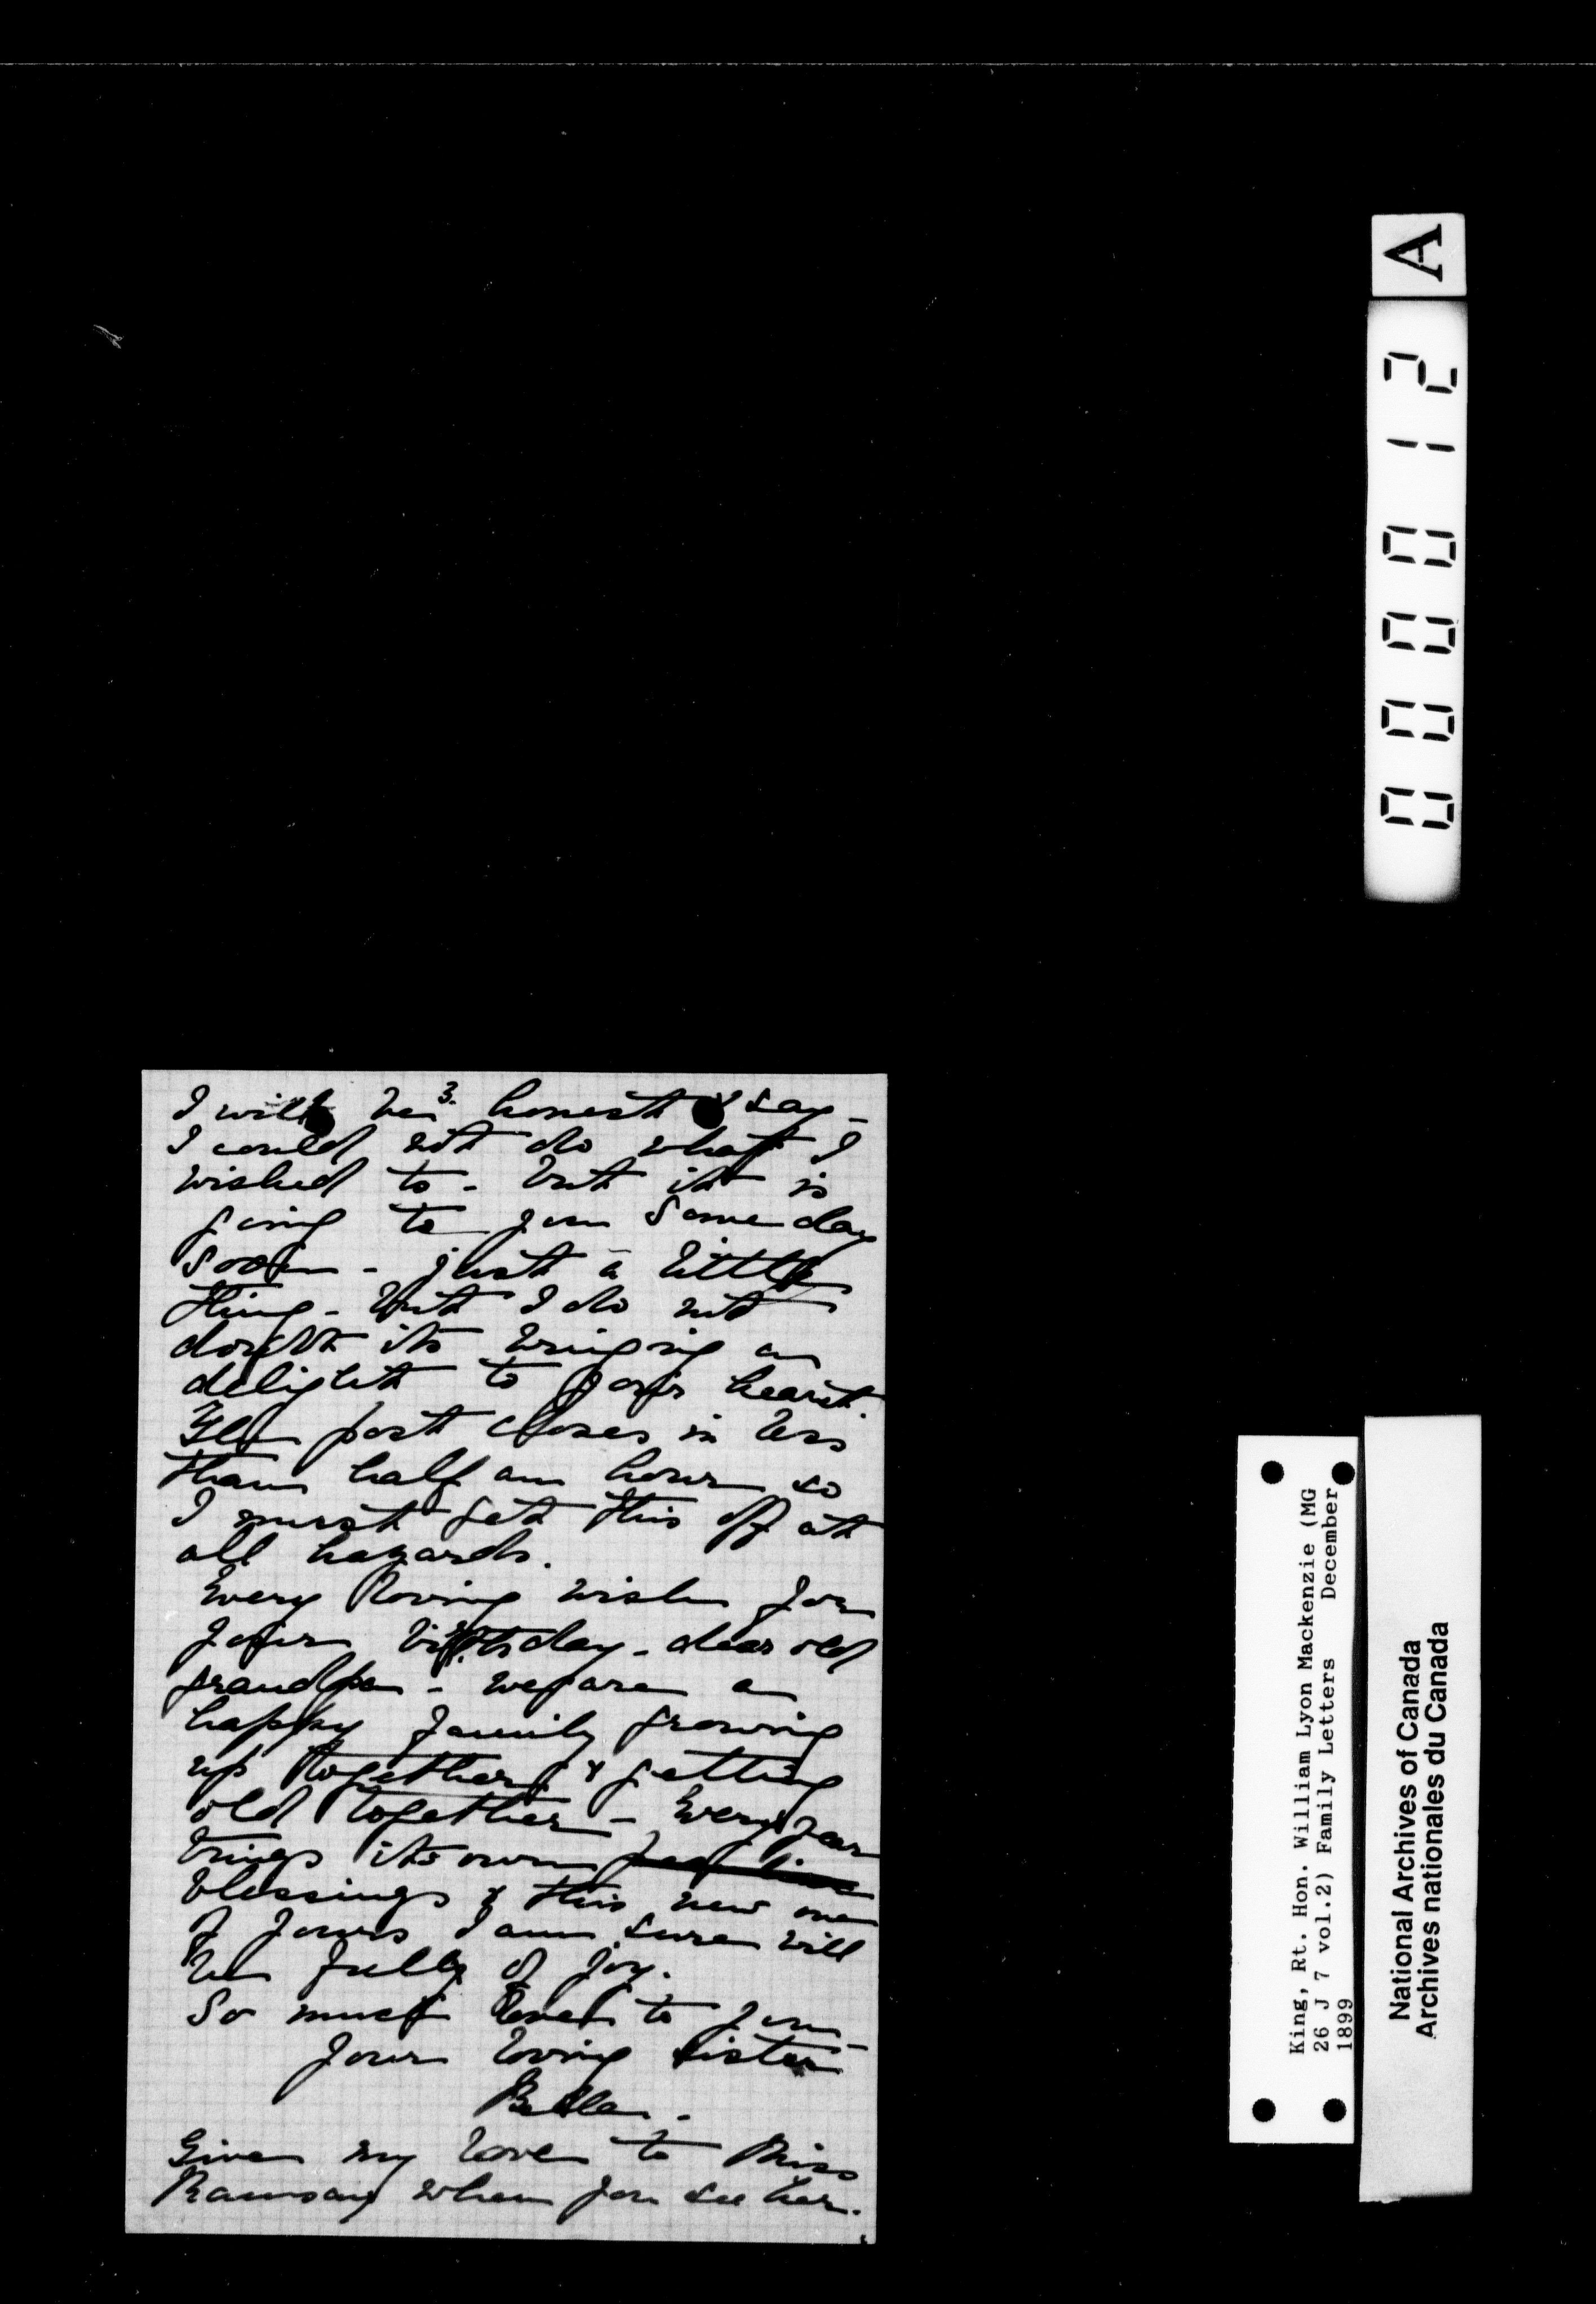 3.
I will be honest & say -
I could not do what I
wished to - but it is
going to you some day
soon - just a little
thing - but I do not
doubt its bringing a
delight to your heart.
The post closes in less
than half an hour so
I must get this off at
all hazards.
Every loving wish for
your birthday - dear old
grandpa - we are a
happy family growing
up together & getting
old together - Every year
brings its own
blessings & this new one
of yours I am sure will
be full of joy.
So much love to you -
Your loving sister
Bella -
Give my love to Miss
Ramsay when you see her.
A
000012
King, Rt. Hon. William Lyon Mackenzie (MG
26 J 7 vol.2) Family Letters December
1899
National Archives of Canada
Archives nationales du Canada